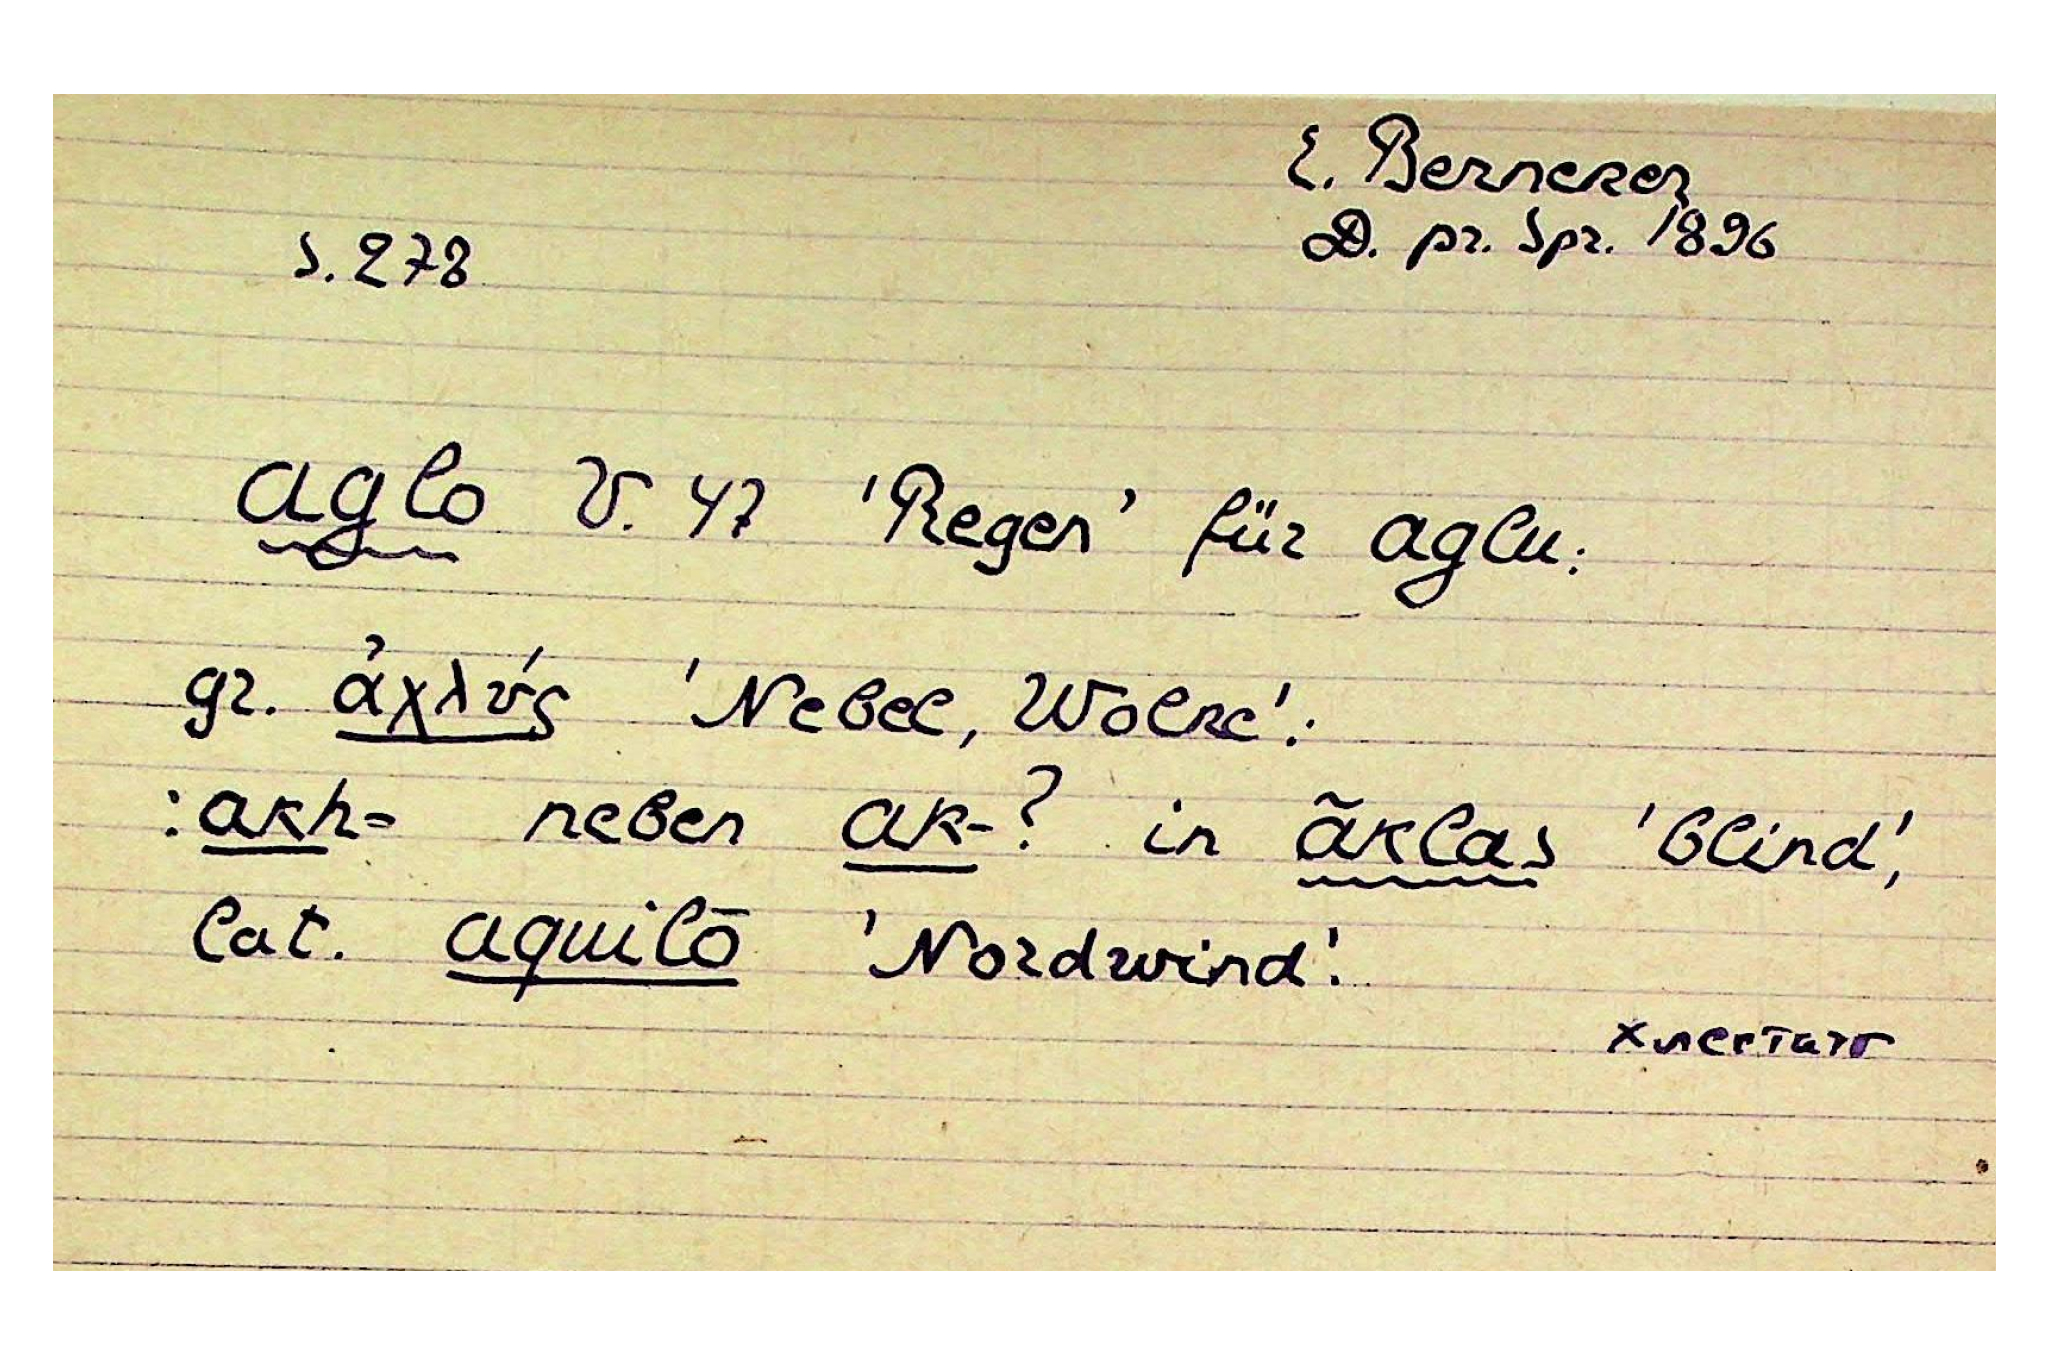 E. Berneker
D. pr. Spr. 1896
S. 278
aglo V. 47 'Regen' für aglu:
gr. ἀχλύς 'Nebel, Wolke':
:akh- neben ak-? in ãklas 'blind',
lat. aquilō 'Nordwind'.